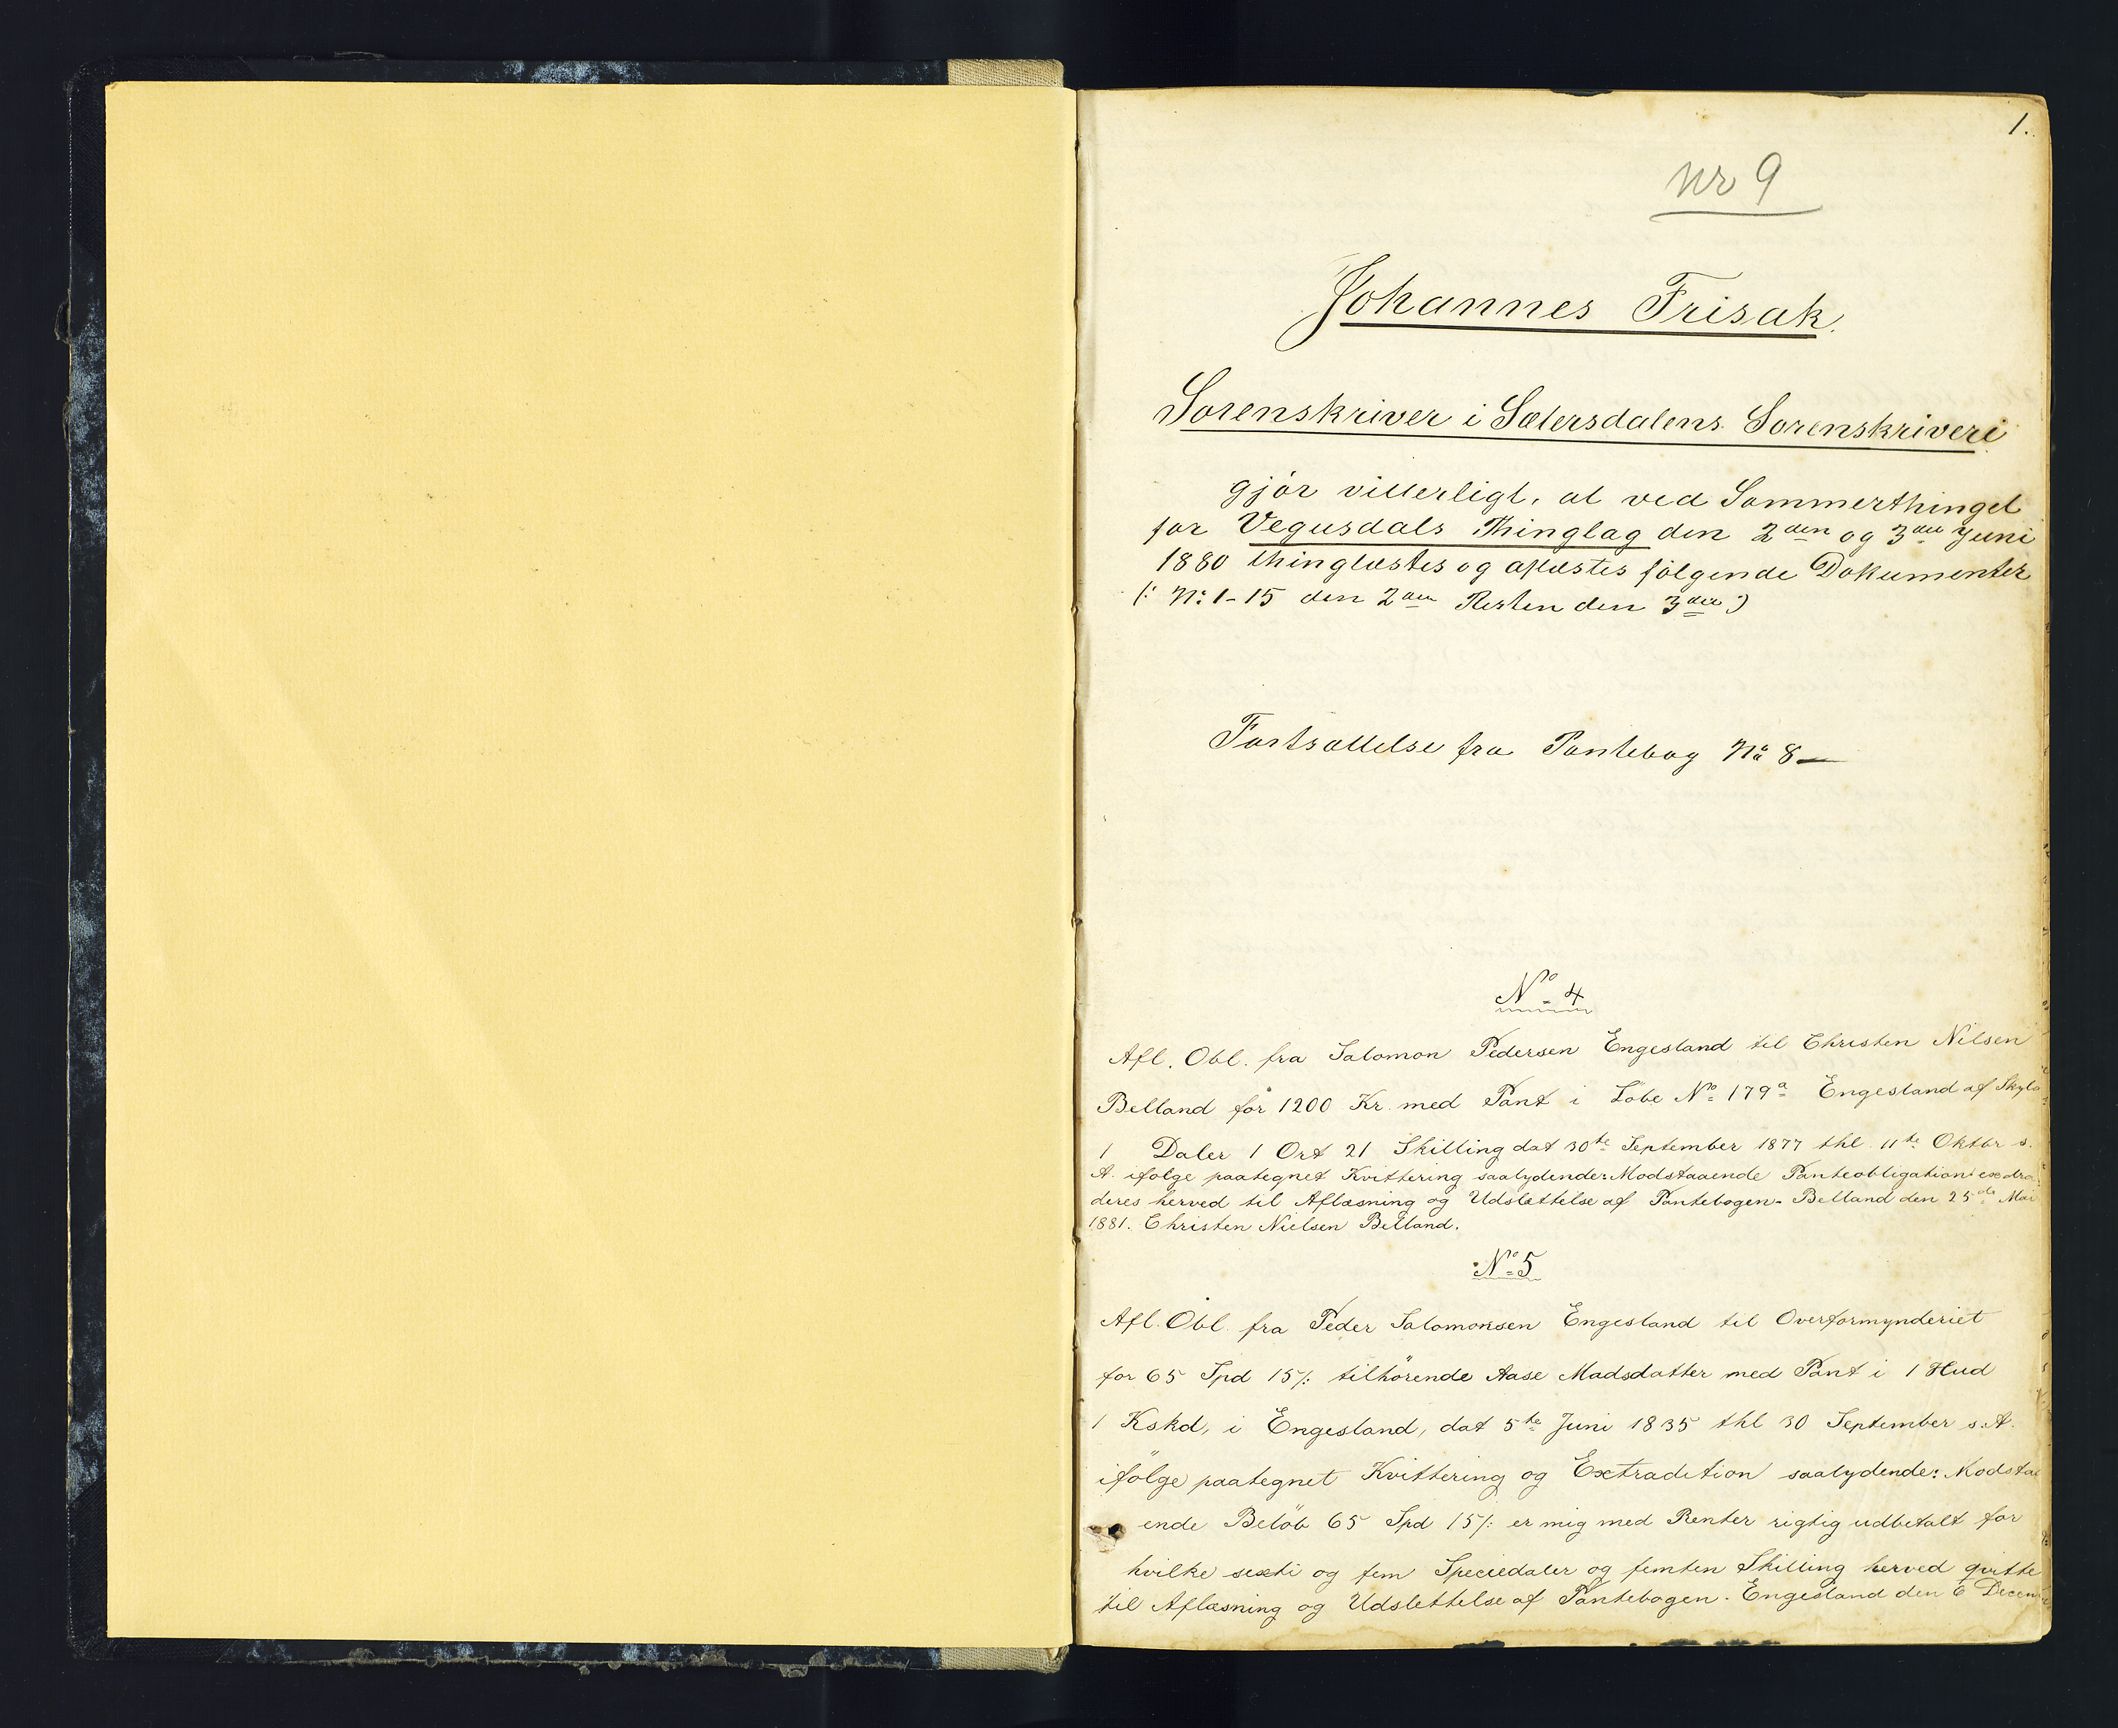 1.
Nr 9
Johannes Frisak.
Sorenskriver i Sætersdalens Sorenskriveri
gjør vitterligt, at ved Sommerthinget
for Vegusdals Thinglag den 2den og 3die Juni
1880 thinglæstes og aflæstes følgende Dokumenter
(: No: 1-15 den 2den Resten den 3die :)
Fortsættelse fra Pantebog No 8 —
No 4
Afl. Obl. fra Salomon Pedersen Engesland til Christen Nilsen
Belland for 1200 Kr. med Pant i Løbe No 179a Engesland af Skyld
1 Daler 1 Ort 21 Skilling dat 30te September 1877 thl. 11te Oktbr s.
A. ifølge paategnet Kvittering saalydende: Modstaaende Panteobligation extra-
deres herved til Aflæsning og Udslættelse af Pantebogen - Belland den 25de Mai
1881. Christen Nielsen Belland.
No 5
Afl. Obl. fra Peder Salomonsen Engesland til Overformynderiet
for 65 Spd 15 /: tilhørende Aase Madsdatter med Pant i 1 Hud
1 Kskd, i Engesland, dat 5te Juni 1835 thl 30 September s. A.
ifølge paategnet Kvittering og Extradition saalydende: Modsta
ende Beløb 65 Spd 15 /: er mig med Renter rigtig udbetalt for
hvilke sexti og fem Speciedaler og femten Skilling herved qvitte
til Aflæsning og Udslettelse af Pantebogen. Engesland den 6 Decem